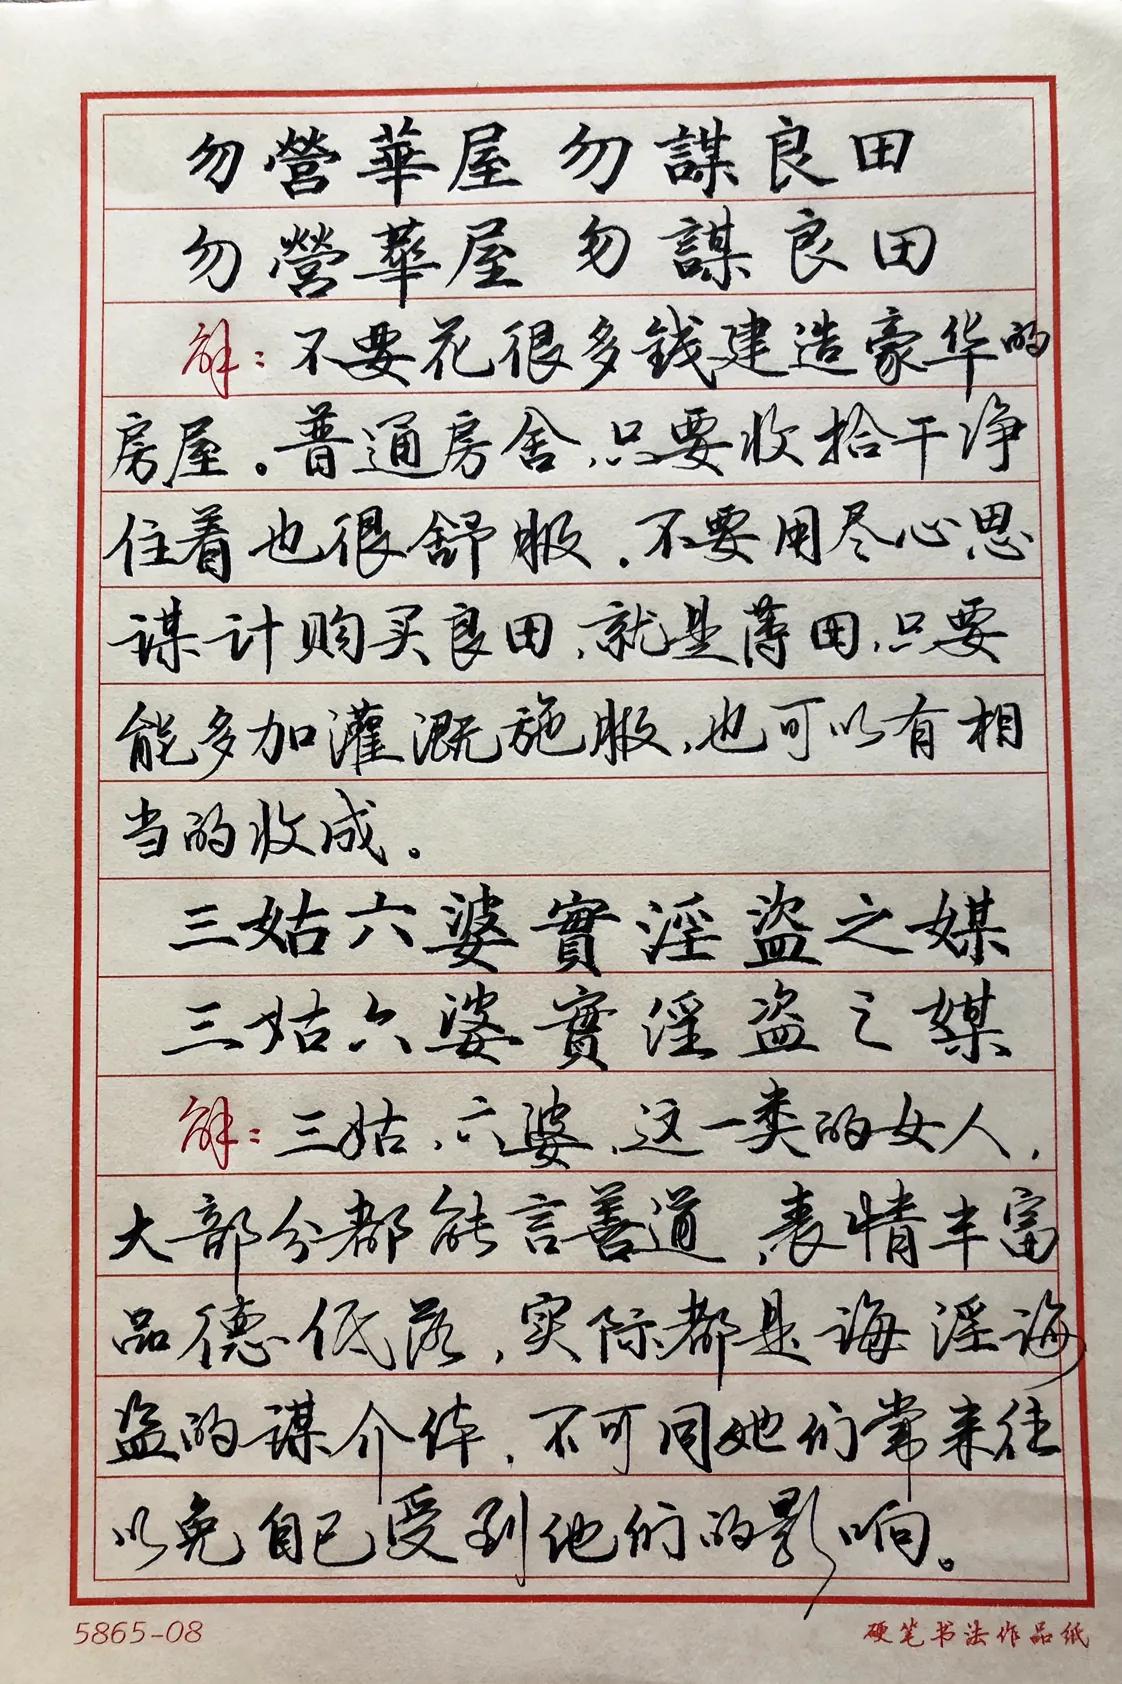 勿營華屋 勿謀良田
勿營華屋 勿謀良田
解：不要花很多钱建造豪华的
房屋。普通房舍，只要收拾干净
住着也很舒服．不要用尽心思
谋计购买良田，就是薄田，只要
能多加灌溉施服，也可以有相
当的收成。
三姑六婆實淫盗之媒
三姑六婆實淫盗之媒
解：三姑，六婆，这一类的女人，
大部分都能言善道，表情丰富
品德低落，实际都是诲淫诲
盗的谋介体，不可同她们常来往
以免自己受到他们的影响。
5865-08
硬笔书法作品纸